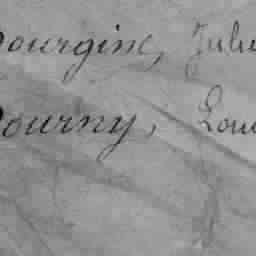 Dourgine, Jule
Dourny, Lou